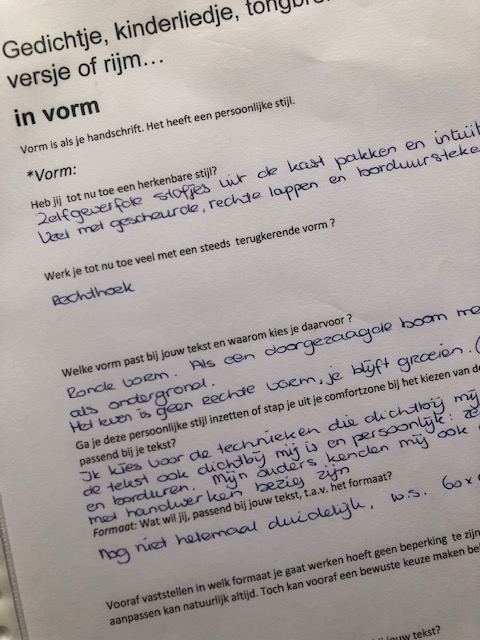 Gedichtje, kinderliedje, tongbre
versje of rijm…
in vorm
Vorm is als je handschrift. Het heeft een persoonlijke stijl.
*Vorm:
Heb jij tot nu toe een herkenbare stijl?
Zelfgeverfde stofjes uit de kast pakken en intuït
Veel met gescheurde, rechte lappen en borduursteke
Werk je tot nu toe veel met een steeds terugkerende vorm ?
Rechthoek
Welke vorm past bij jouw tekst en waarom kies je daarvoor ?
Ronde vorm. Als een doorgezaagde boom me
als ondergrond.
Het leven is geen rechte vorm, je blijft groeien. (
Ga je deze persoonlijke stijl inzetten of stap je uit je comfortzone bij het kiezen van de
passend bij je tekst?
Ik kies voor de technieken die dichtbij mij
de tekst ook dichtbij mij is en persoonlijk: ze
en borduren. Mijn ouders kenden mij ook
met handwerken bezig zijn
Formaat: Wat wil jij, passend bij jouw tekst, t.a.v. het formaat?
Nog niet helemaal duidelijk, w.s. 60x
Vooraf vaststellen in welk formaat je gaat werken hoeft geen beperking te zijn
aanpassen kan natuurlijk altijd. Toch kan vooraf een bewuste keuze maken bel
bij jouw tekst?